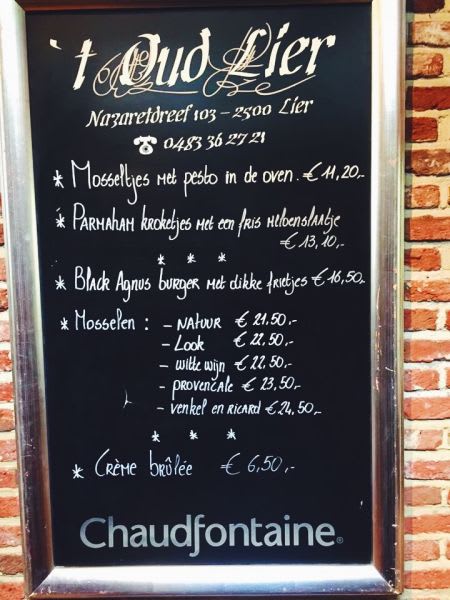 't Oud Lier
Nazaretdreef 103 – 2500 Lier
☎ 0483 36 27 21
* Mosseltjes met pesto in de oven. € 11,20,-
* Parmaham kroketjes met een fris meloenslaatje
€ 13,10,-
* * *
* Black Agnus burger met dikke frietjes € 16,50,-
* Mosselen : – natuur € 21,50,-
– Look € 22,50,-
– witte wijn € 22,50,-
– provençale € 23,50,-
– venkel en ricard € 24,50,-
* * *
* Crème brûlée € 6,50,-
Chaudfontaine®